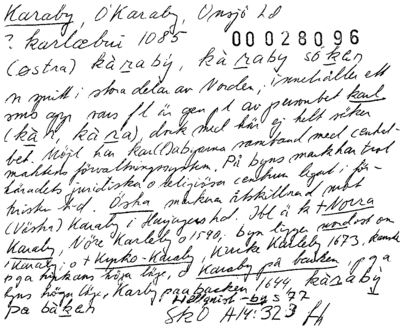 Karaby, Ö Karaby, Onsjö hd
? karlæbui 1085 00028096
(östra) kàraby, kàraby sòken
n smitt i stora delar av Norden, innehåller ett
sms app vars fl är gen pl av personbet karl
(kàr, kàra), dock med här ej helt säker
bet. Möjl har karl(a)byarna samband med central-
maktens förvaltningssystem. På byns mark har trol
häradets juridiska o religiösa centrum legat i för-
historisk tid. Östra markera åtskillnad mot
(Västra) Karaby i Harjagers hd. Jbl à k + Norra
Karaby, Nörre Karleby o 1590, byn ligger nordost om
i Karaby, o + Kyrko-Karaby, Kircke Karleby 1673,
pga kyrkans höga läge, o Karaby på backen, pga
byns höga läge, Karby paa backen 1644, kàraby
pa bàken Hallqvist-by s 77
SkO A14:323 ff